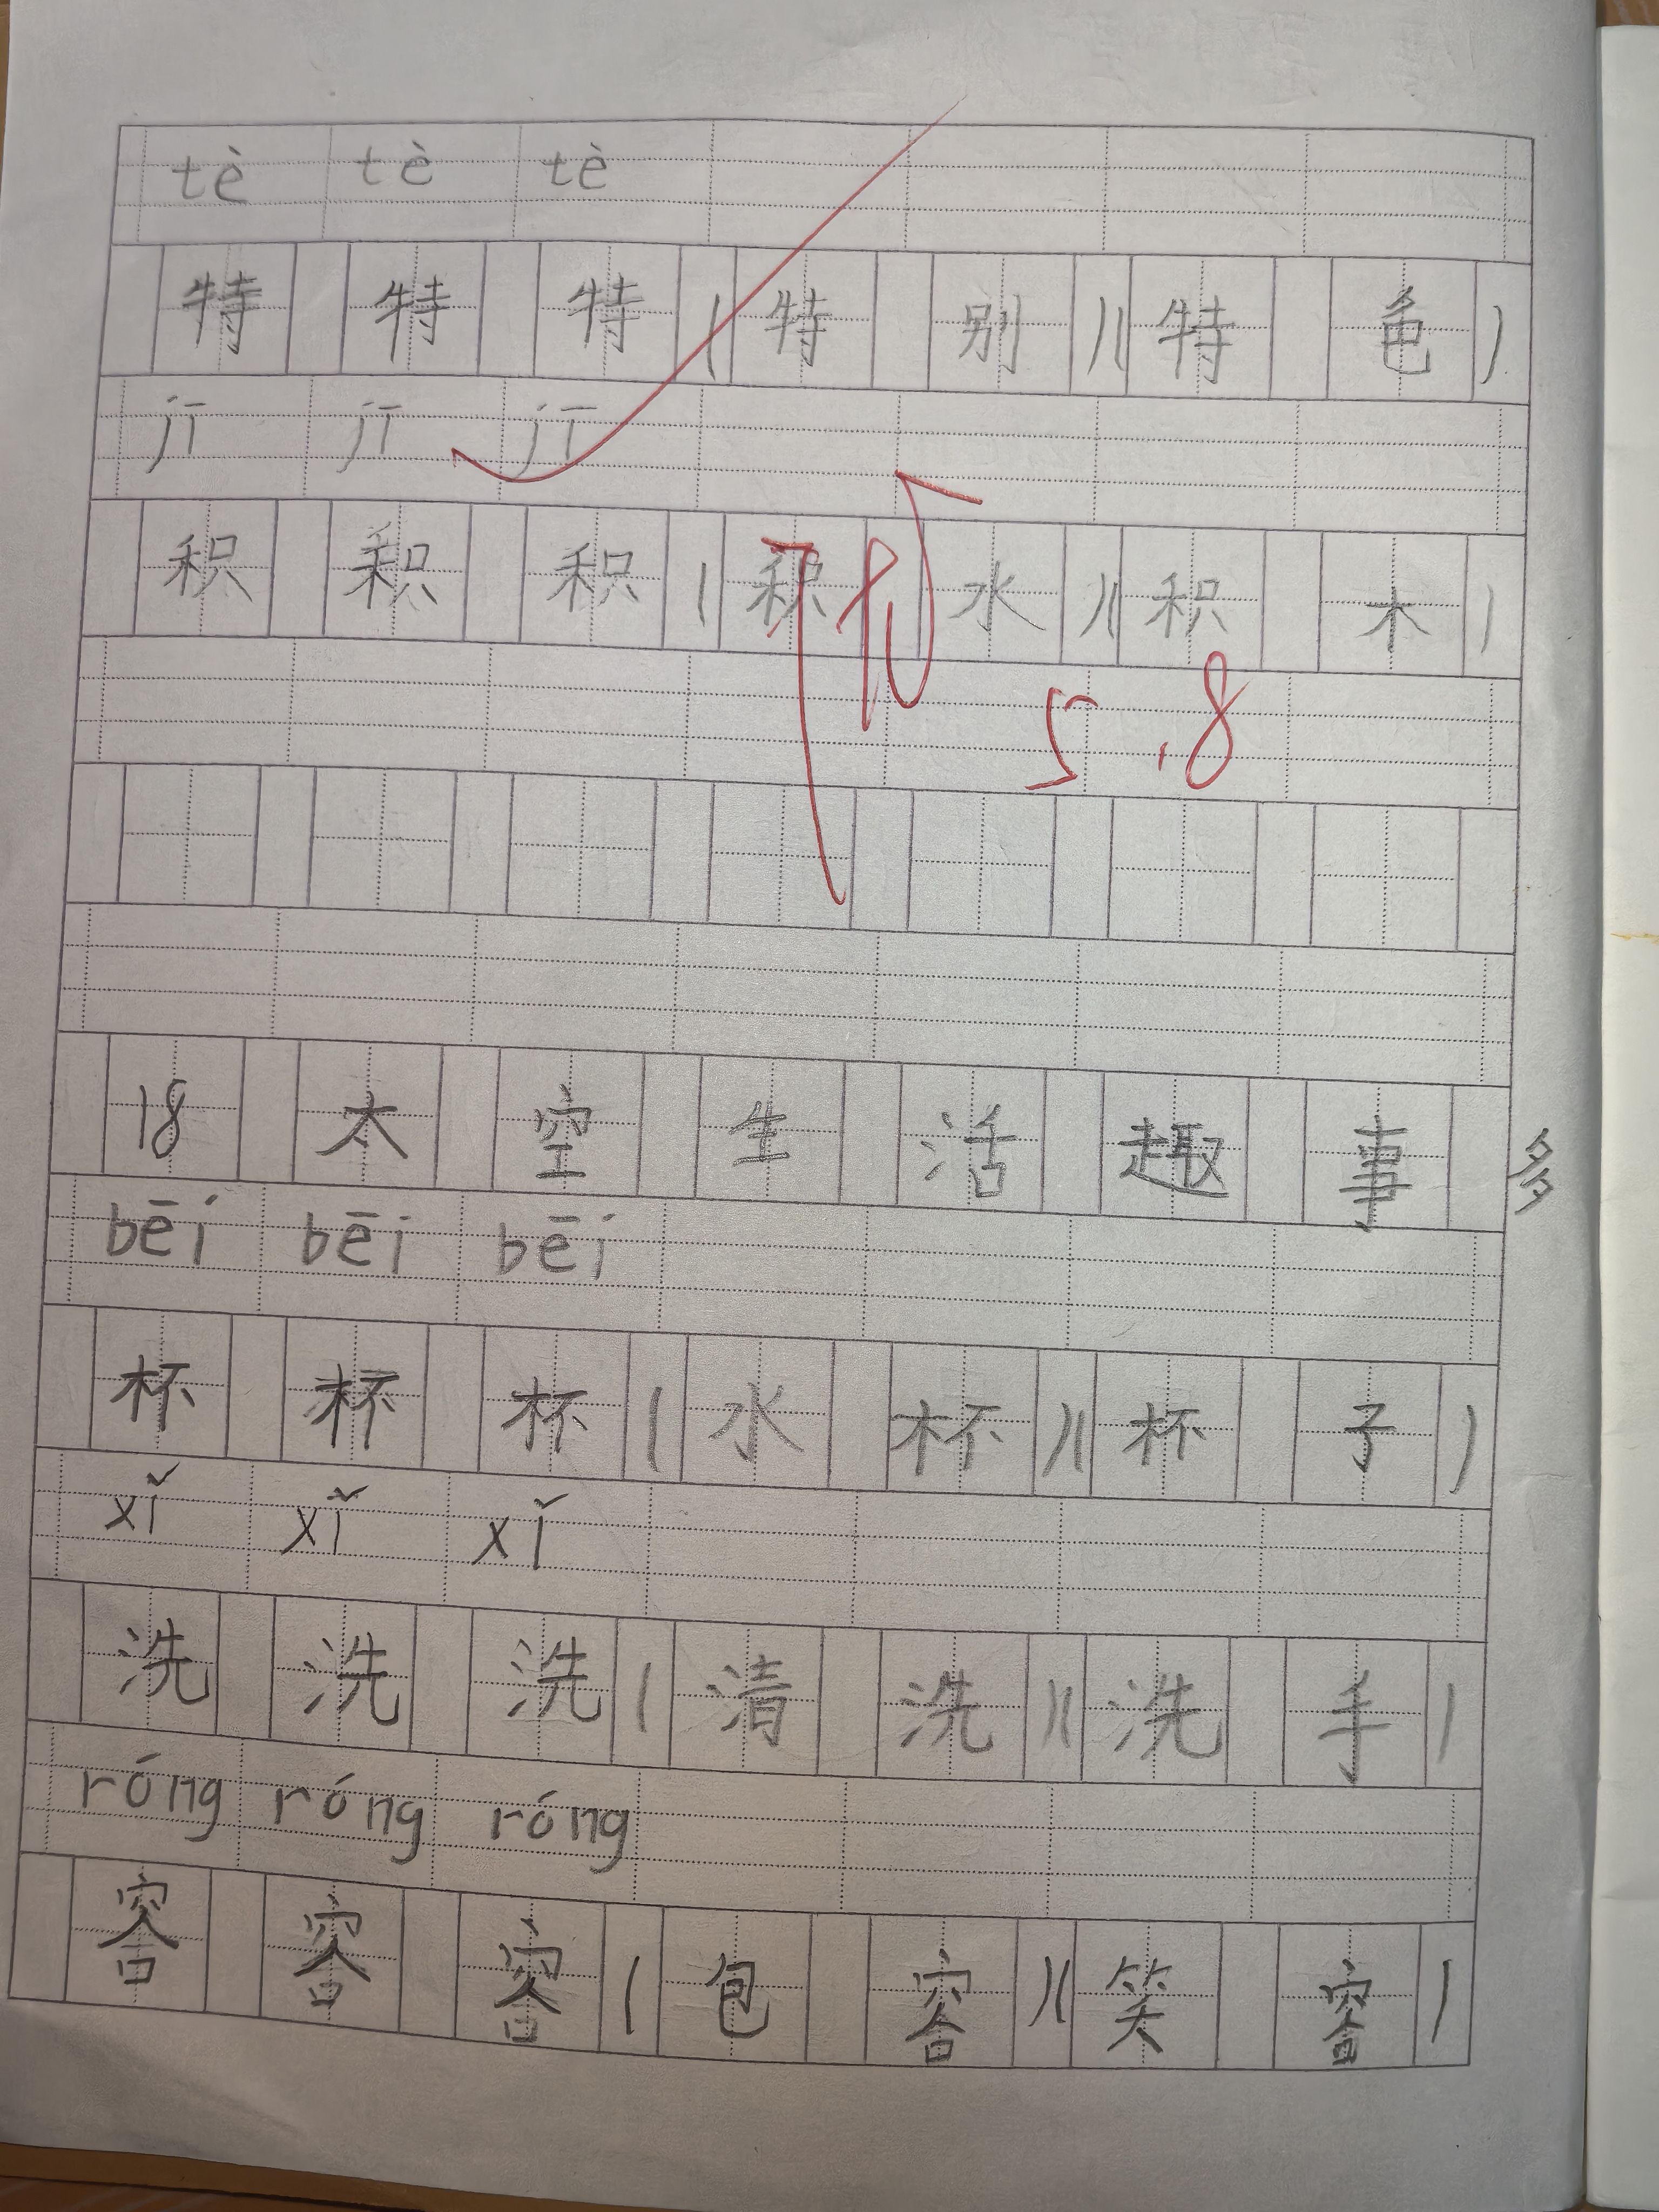 tè tè tè
特 特 特 (特 别)(特 色)
jī jī jī
积 积 积 (积 水)(积 木)
5.8
18 太 空 生 活 趣 事
多
bēi bēi bēi
杯 杯 杯 (水 杯)(杯 子)
xǐ xǐ xǐ
洗 洗 洗 (清 洗)(洗 手)
róng róng róng
容 容 容 (包 容)(笑 容)